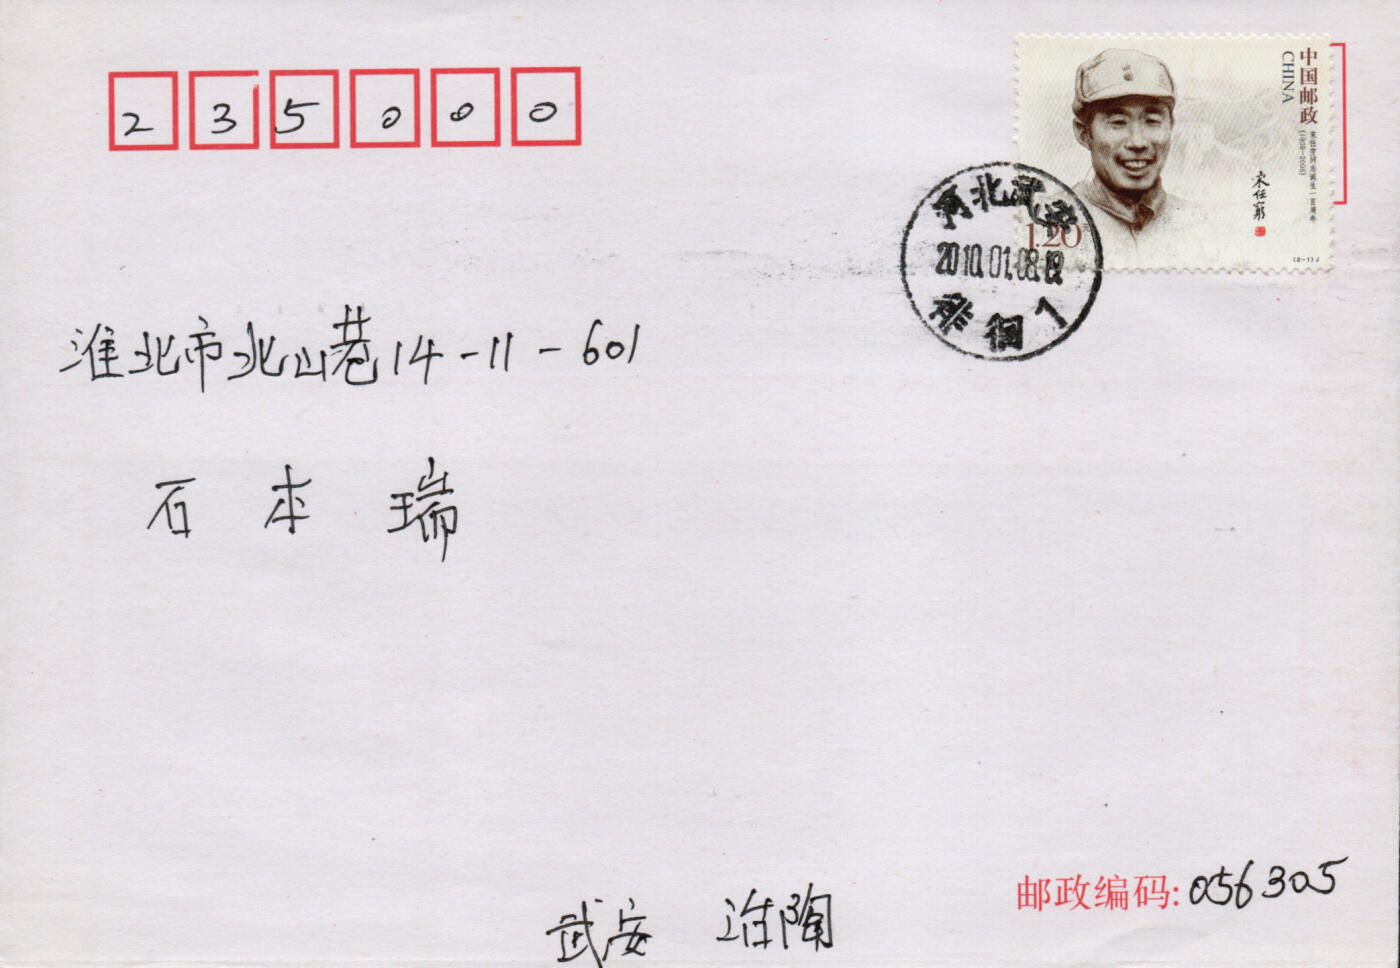 235000
中国邮政
CHINA
宋任穷同志诞生一百周年
(1909—2005)
宋任穷
1.20元
(2-1)J
河北武安
2010.01.08.19
徘徊 1
淮北市北山巷14-11-601
石本瑞
邮政编码:056305
武安